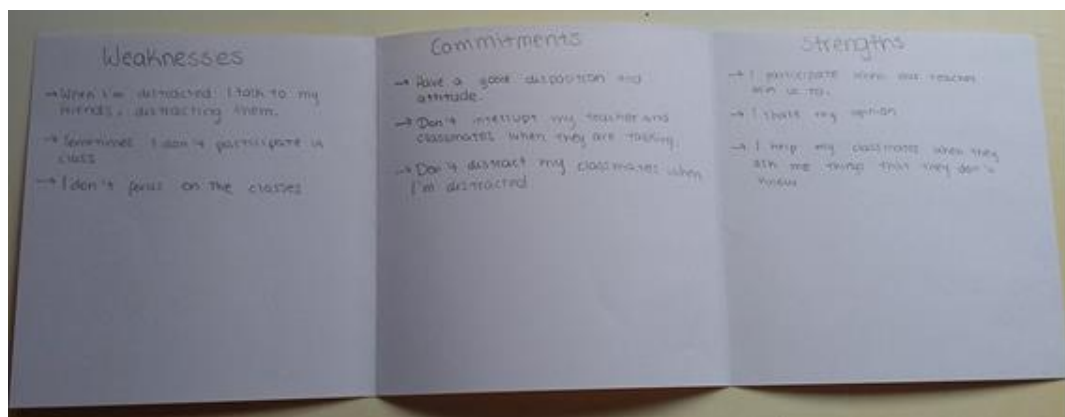 Weaknesses
→ When I'm distracted I talk to my
friends, distracting them.
→ Sometimes I don't participate in
class
→ I don't focus on the classes
Commitments
→ Have a good disposition and
attitude.
→ Don't interrupt my teacher and
classmates when they are talking.
→ Don't distract my classmates when
I'm distracted
Strengths
→ I participate when our teacher
ask us to.
→ I share my opinion
→ I help my classmates when they
ask me things that they don't
know